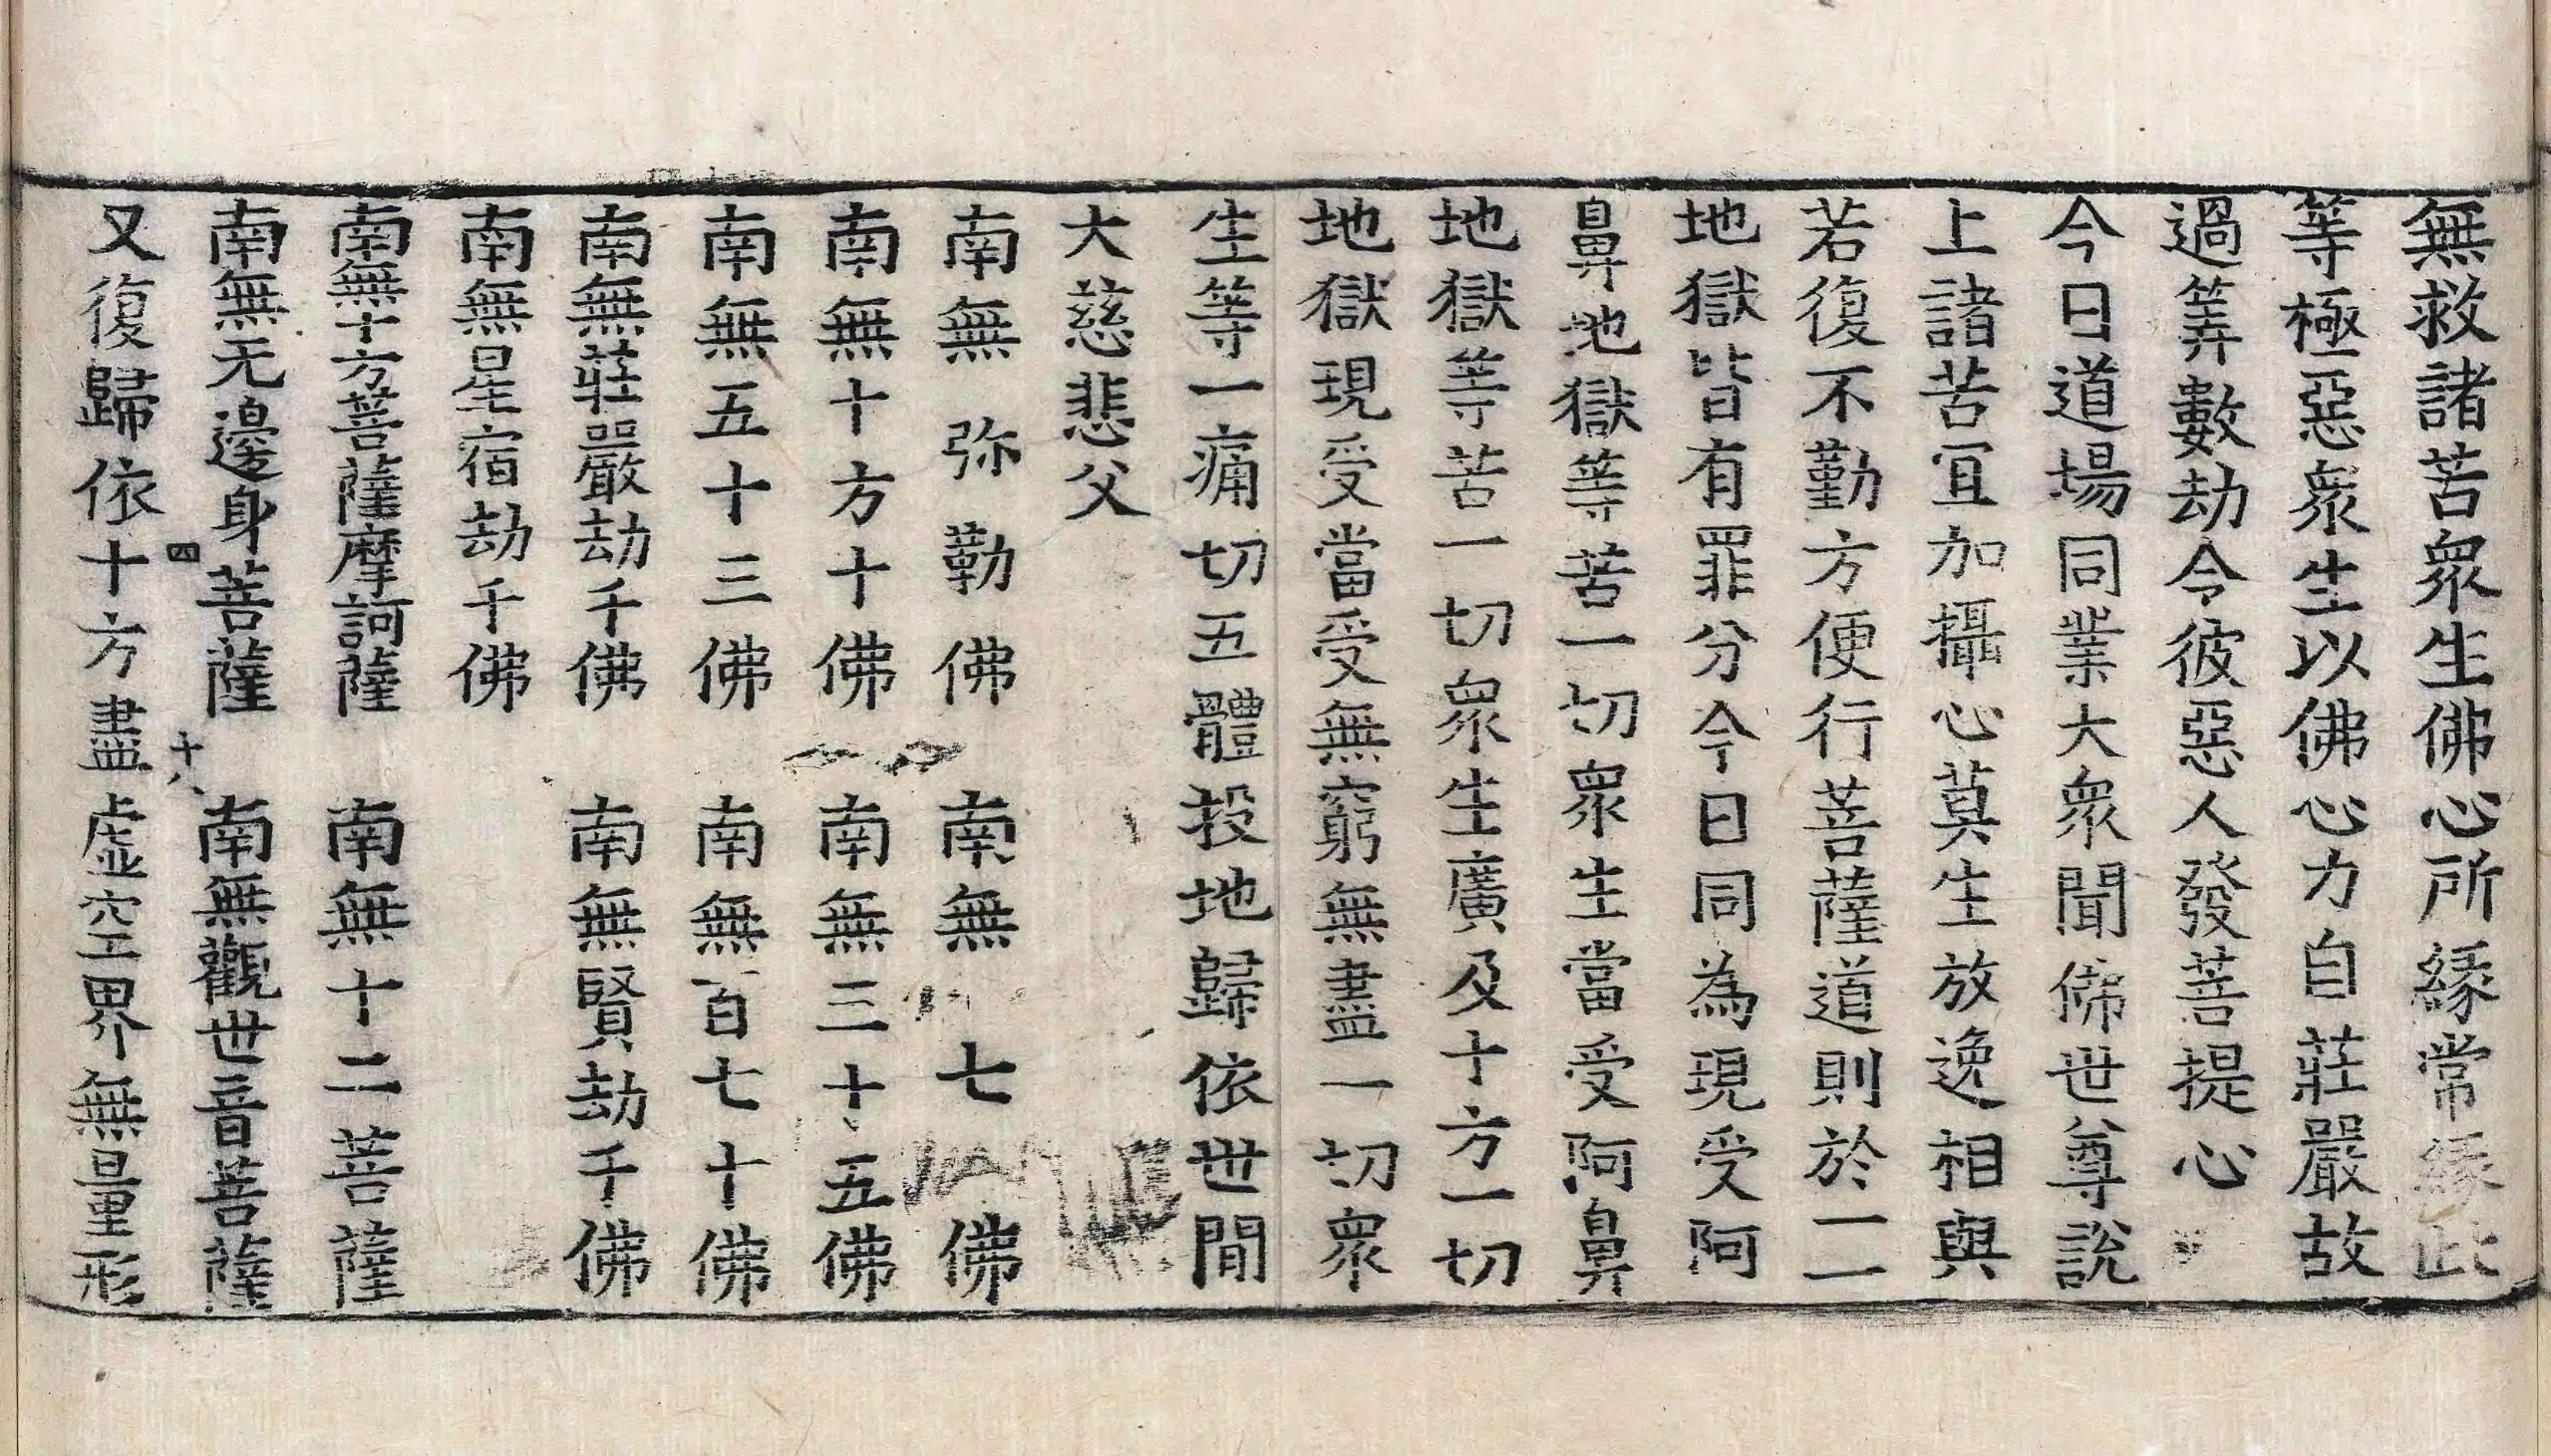 無救諸苦衆生佛心所縁常縁此
等極惡衆生以佛心力自莊嚴故
過筭數劫令彼惡人發菩提心
今日道場同業大衆聞佛世尊說
上諸苦冝加攝心莫生放逸相與
若復不勤方便行菩薩道則於一一
地獄皆有罪分今日同為現受阿
鼻地獄等苦一切衆生當受阿鼻
地獄等苦一切衆生廣及十方一切
地獄現受當受無窮無盡一切衆
生等一痛切五體投地歸依世間
大慈悲父
南無弥勒佛　南無七佛
南無十方十佛　南無三十五佛
南無五十三佛　南無百七十佛
南無莊嚴劫千佛　南無賢劫千佛
南無星宿劫千佛
南無十方菩薩摩訶薩　南無十二菩薩
南無无邊身菩薩　南無觀世音菩薩
四　十八
又復歸依十方盡虛空界無量形